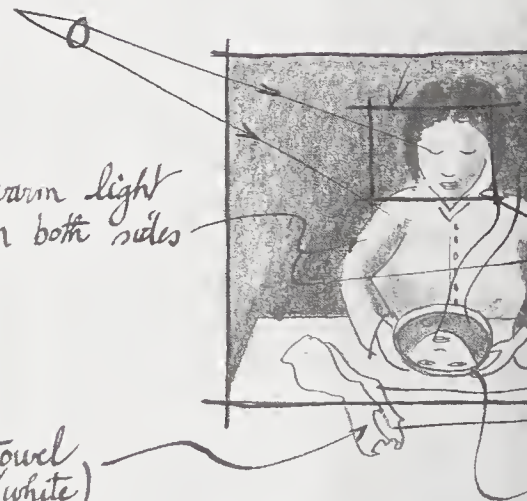 warm light
n both sides
towel
(white)